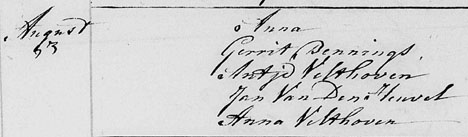 August
Anna
Gerrit Bennings
Antje Velthoven
Jan Van Den Heuvel
Anna Velthoven